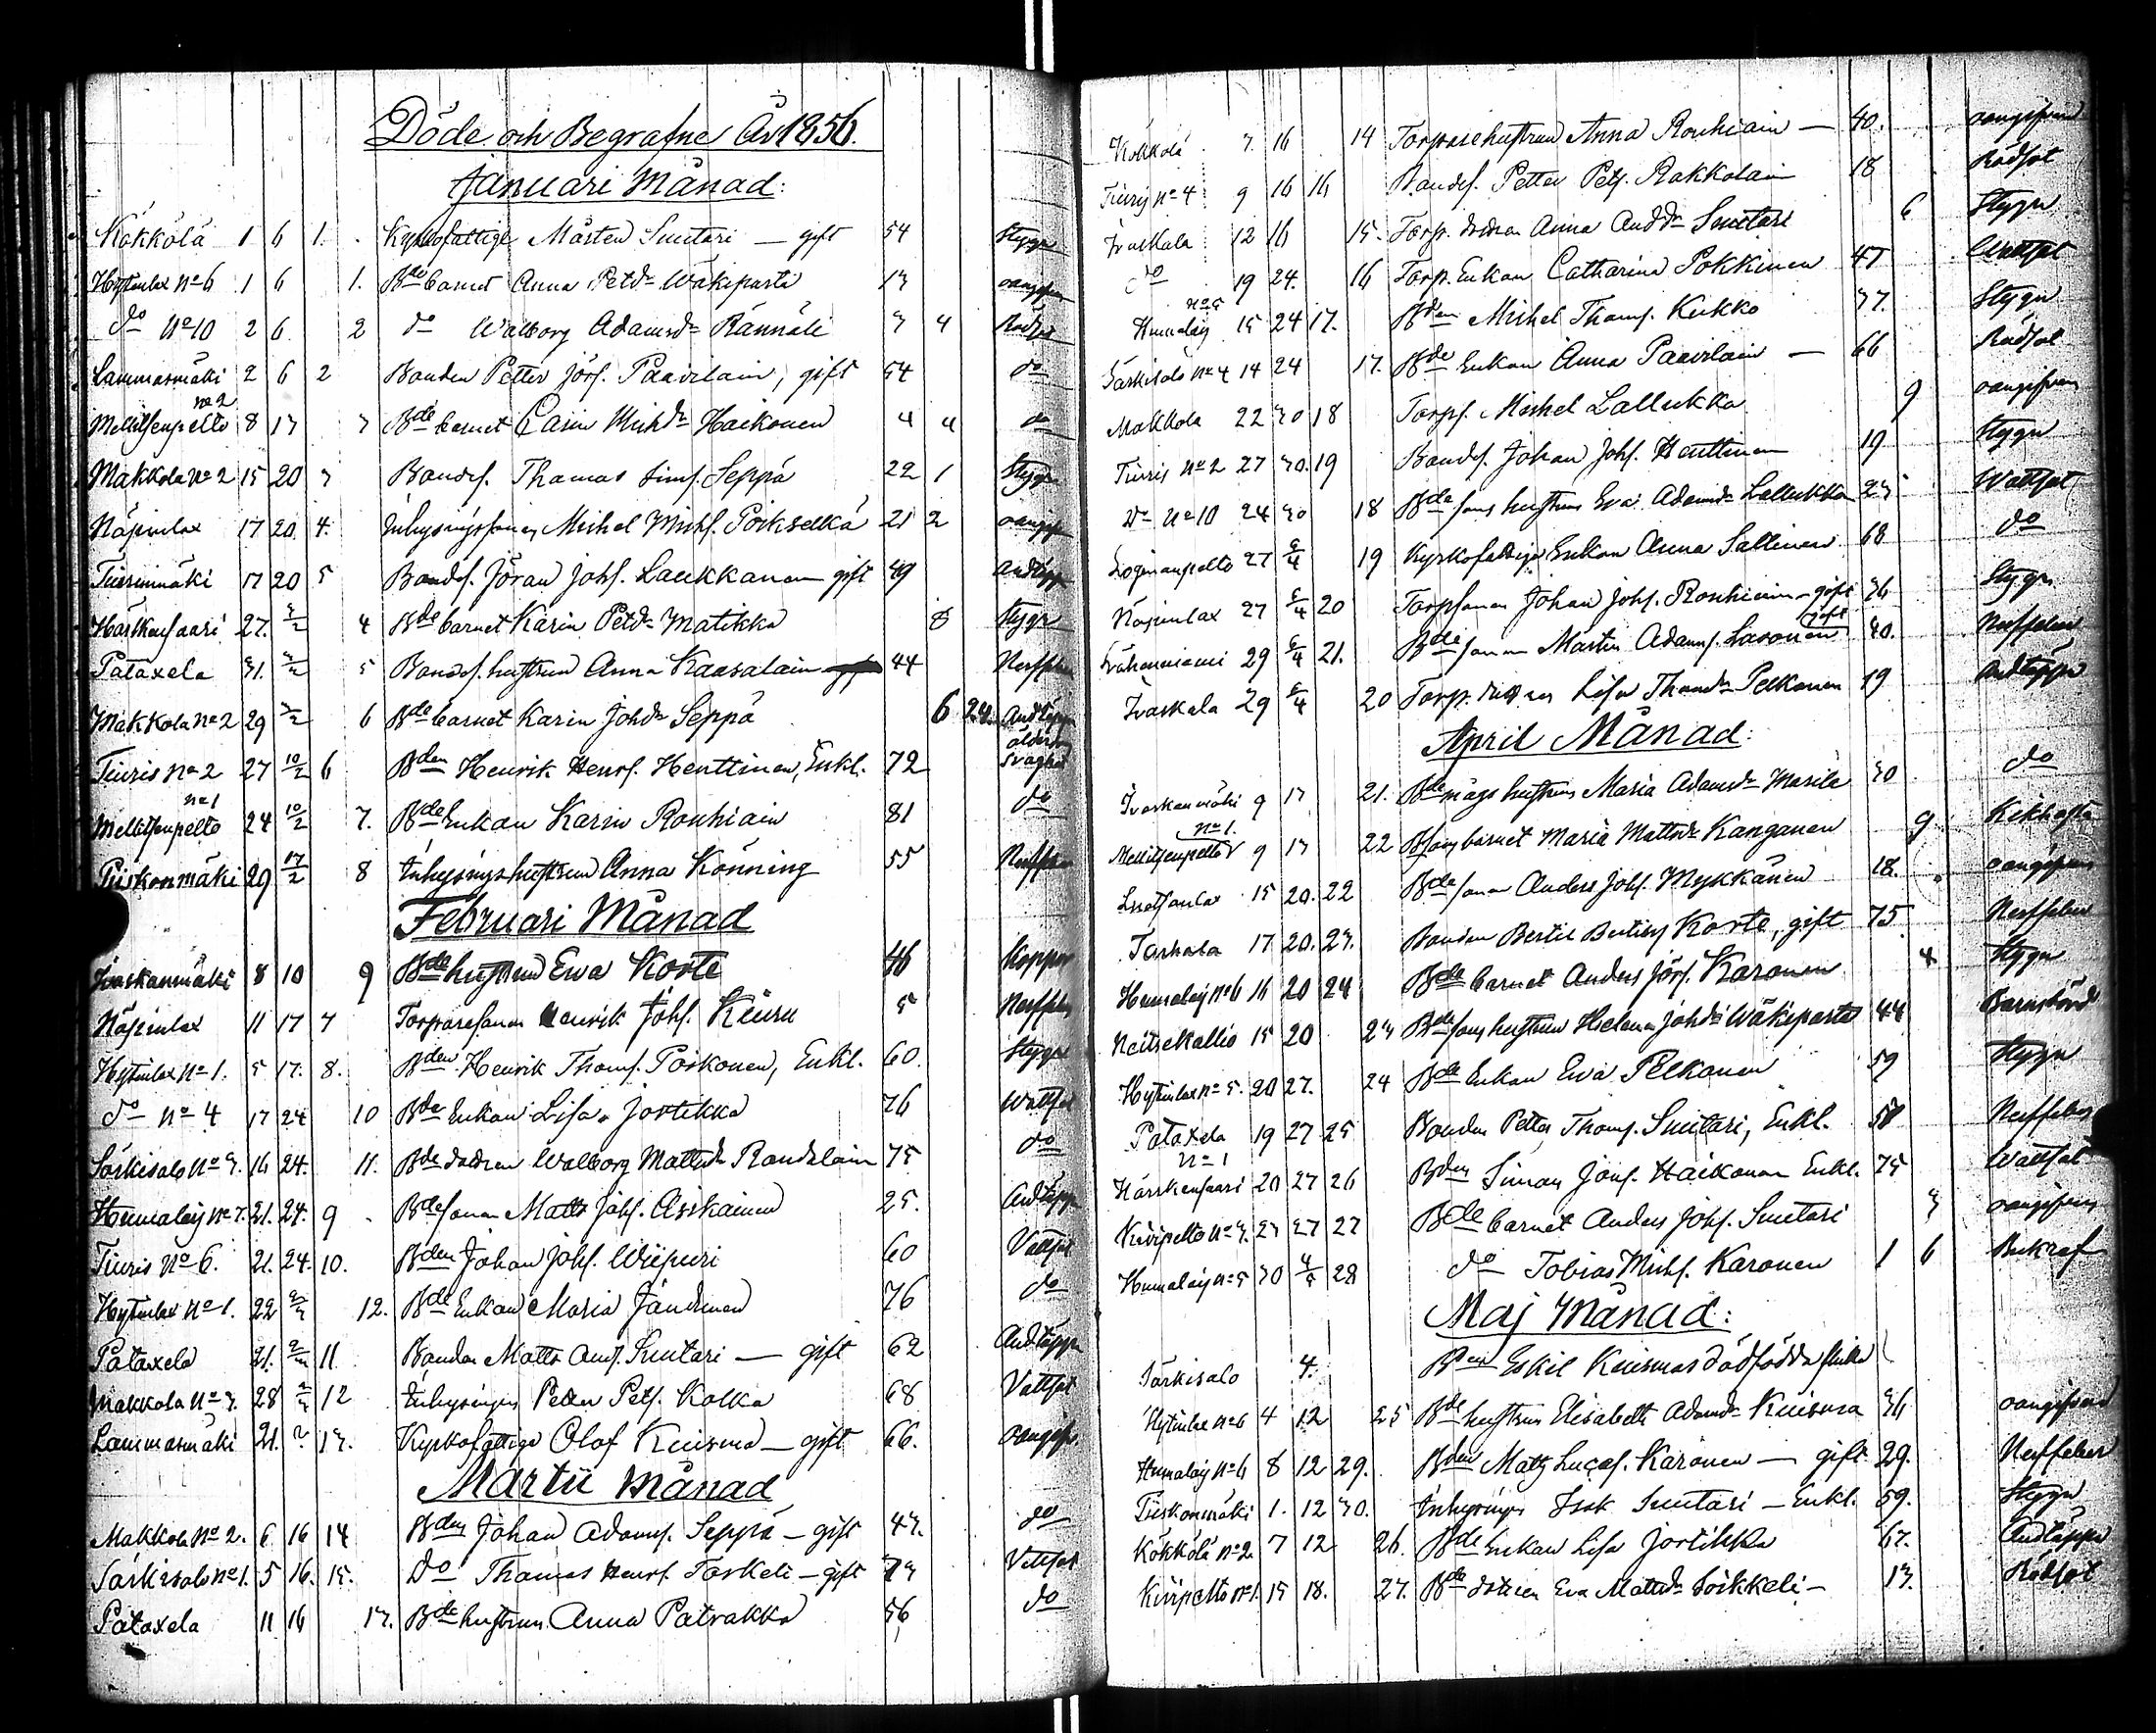 Döde och Begrafne År 1856.
Januari Månad:
Kökkölä 1 6 1. Kyrkofattige Mårten Smetari — gift 54 Stygn
Hytinlax No 6 1 6 1. Bde barnet Anna Petdr Wäkiparta 13 oangifven
do No 10 2 6 2 do Walborg Adamsdr Rännäli 3 4 Rödsot
Lammasmäki 2 6 2 Bonden Petter Jörs. Paavilain, gift 54 do
Mellitsenpelto No 2 8 13 3 Bde barnet Carin Michdr Haikonen 4 4 do
Makkola No 2 15 20 3 Bondes. Thomas Sims. Seppä 22 1 Stygn
Näpinlax 17 20 4. Inhysingssonen Michel Michs. Poikselkä 21 2 oangif
Tiurinmäki 17 20 5 Bondes. Jöran Johs. Laukkanen gift 49 Andtäpp
Härskensaari 27. 3/2 4 Bde barnet Karin Petdr Matikka 8 Stygn
Pataxela 31. 3/2 5 Bondes. hustrun Anna Kaasalain 44 Nerffeber
Makkola No 2 29 3/2 6 Bde barnet Karin Johdr Seppä 6 24. Andtäppa
Tiuris No 2 27 10/2 6 Bden Henrik Henrs. Henttinen, Enkl. 72 ålderdoms svaghet
Mellitsenpelto No 1 24 10/2 7. Bde Enkan Karin Rouhiain 81 do
Piiskonmäki 29 17/2 8 Inhysingshustrun Anna Könning 55 Nerffeber
Februari Månad
Ivaskanmäki 8 10 9 Bde hustrun Ewa Korte 46 Koppor
Näpinlax 11 17 7 Torparesonen Henrik Johs. Kiuru 5 Nerffeber
Hytinlax No 1. 5 17. 8. Bden Henrik Thoms. Poikonen, Enkl. 60. Stygn
do No 4 17 24 10 Bde Enkan Lisa Jortikka 76 Wattsot
Särkisalo No 3. 16 24. 11. Bde dottren Walborg Mattsdr Randalain 75 do
Humaloij No 7. 21. 24. 9 Bde sonen Matts Johs. Asikainen 25. Andtäppa
Tiuris No 6. 21. 24. 10. Bden Johan Johs. Wiipuri 60 Vattsot
Hytinlax No 1. 22 2/3 12. Bde Enkan Maria Jändinen 76 do
Pataxela 21. 2/3 11 Bonden Matts Ands. Smetari — gift 62 Andtäppa
Makkola No 3. 28 2/3 12 Inhysingen Petter Pets. Kolka 68 Vattsot
Lammasmäki 21. 2 13. Kyrkofattige Olof Kuisma — gift 66. oangif.
Martii Månad
Makkola No 2. 6 16 14 Bden Johan Adams. Seppä — gift 43. do
Särkisalo No 1. 5 16. 15. Do Thomas Henrs. Torkeli — gift 73 Vattsot
Pataxela 11 16 13. Bde hustrun Anna Patrakka 56 do
Kökkölä 7. 16 14 Torparehustrun Anna Rouhiain — 40. oangifven
Tiuris No 4 9 16 16 Bondes. Petter Pets. Rakkolain 18 Rödsot
Ivaskala 12 16 15. Torp. dottren Anna Andsdr Smetari 6 Stygn
do 19 24. 16 Torp. Enkan Catharina Pokkinen 47 Wattsot
Humaloij No 5 15 24 17. Bden Michel Thoms. Kukko 37. Stygn
Särkisalo No 4 14 24 17. Bde Enkan Anna Paavilain — 66 Rödsot
Makkola 22 30 18 Torps. Michel Lallukka 9 oangifven
Tiuris No 2 27 30. 19 Bondes. Johan Johs. Henttinen 19 Stygn
Do No 10 24 30 18 Bde sons hustrun Eva Adamsdr Lallukka 23 Wattsot
Loginanpelto 27 6/4 19 Kyrkofattiga Enkan Anna Sallinen 68 do
Näpinlax 27 6/4 20 Torpsonen Johan Johs. Rouhiain — gift 36 Stygn
Ivähenniemi 29 6/4 21. Bde sonen Mårten Adams. Lavonen gift 40. Nerffeber
Ivaskala 29 6/4 20 Torp. dottren Lisa Thomdr Pelkonen 19 Andtäppa
April Månad:
Ivaskanmäki 9 13 21. Bde mågs hustrun Maria Adamsdr Marila 30 do
Mellitsenpelto No 1. 9 13 22 Bdsons barnet Maria Mattsdr Kanganen 9 Kikhosta
15 20. 22 Bde sonen Anders Johs. Mykkänen 18. oangifven
Tarhola 17 20. 23. Bonden Bertil Bertils. Korte, gift 75 Nerffeber
Humaloij No 6 16 20 24 Bde barnet Anders Jörs. Karonen 4 Stygn
Näitsekallio 15 20 23 Bde sons hustrun Helena Johdr Wäkiparta 44 Barnsbörd
Hytinlax No 5. 20 27. 24 Bde Enkan Eva Pelkonen 59 Stygn
Pataxela 19 27 25 Bonden Petter Thoms. Smetari, Enkl. 58 Nerffeber
Härskensaari No 1 20 27 26 Bden Simon Jöns. Haikonen Enkl. 75 Wattsot
Kivipelto No 3. 23 27 27 Bde barnet Anders Johs. Smetari 3 oangifven
Humaloij No 5 30 4/5 28 do Tobias Michs. Karonen 1 6 Bukref
Maj Månad:
Särkisalo 4. Bden Eskil Kuismas dödfödda flicka
Hytinlax No 6 4 12 25 Bde hustrun Elisabeth Adamdr Kuisma 36 oangifven
Humaloij No 6 8 12 29. Bden Matts Lucas. Karonen — gift 29. Nerffeber
Tiiskonmäki 1. 12 30. Inhysingen Isak Smetari — Enkl. 59. Stygn
Kökkölä No 2 7 12 26. Bde Enkan Lisa Jortikka 67. Andtäppa
Kivipelto No 1. 15 18. 27. Bde dottren Eva Mattsdr Loikkeli — 13. Rödsot